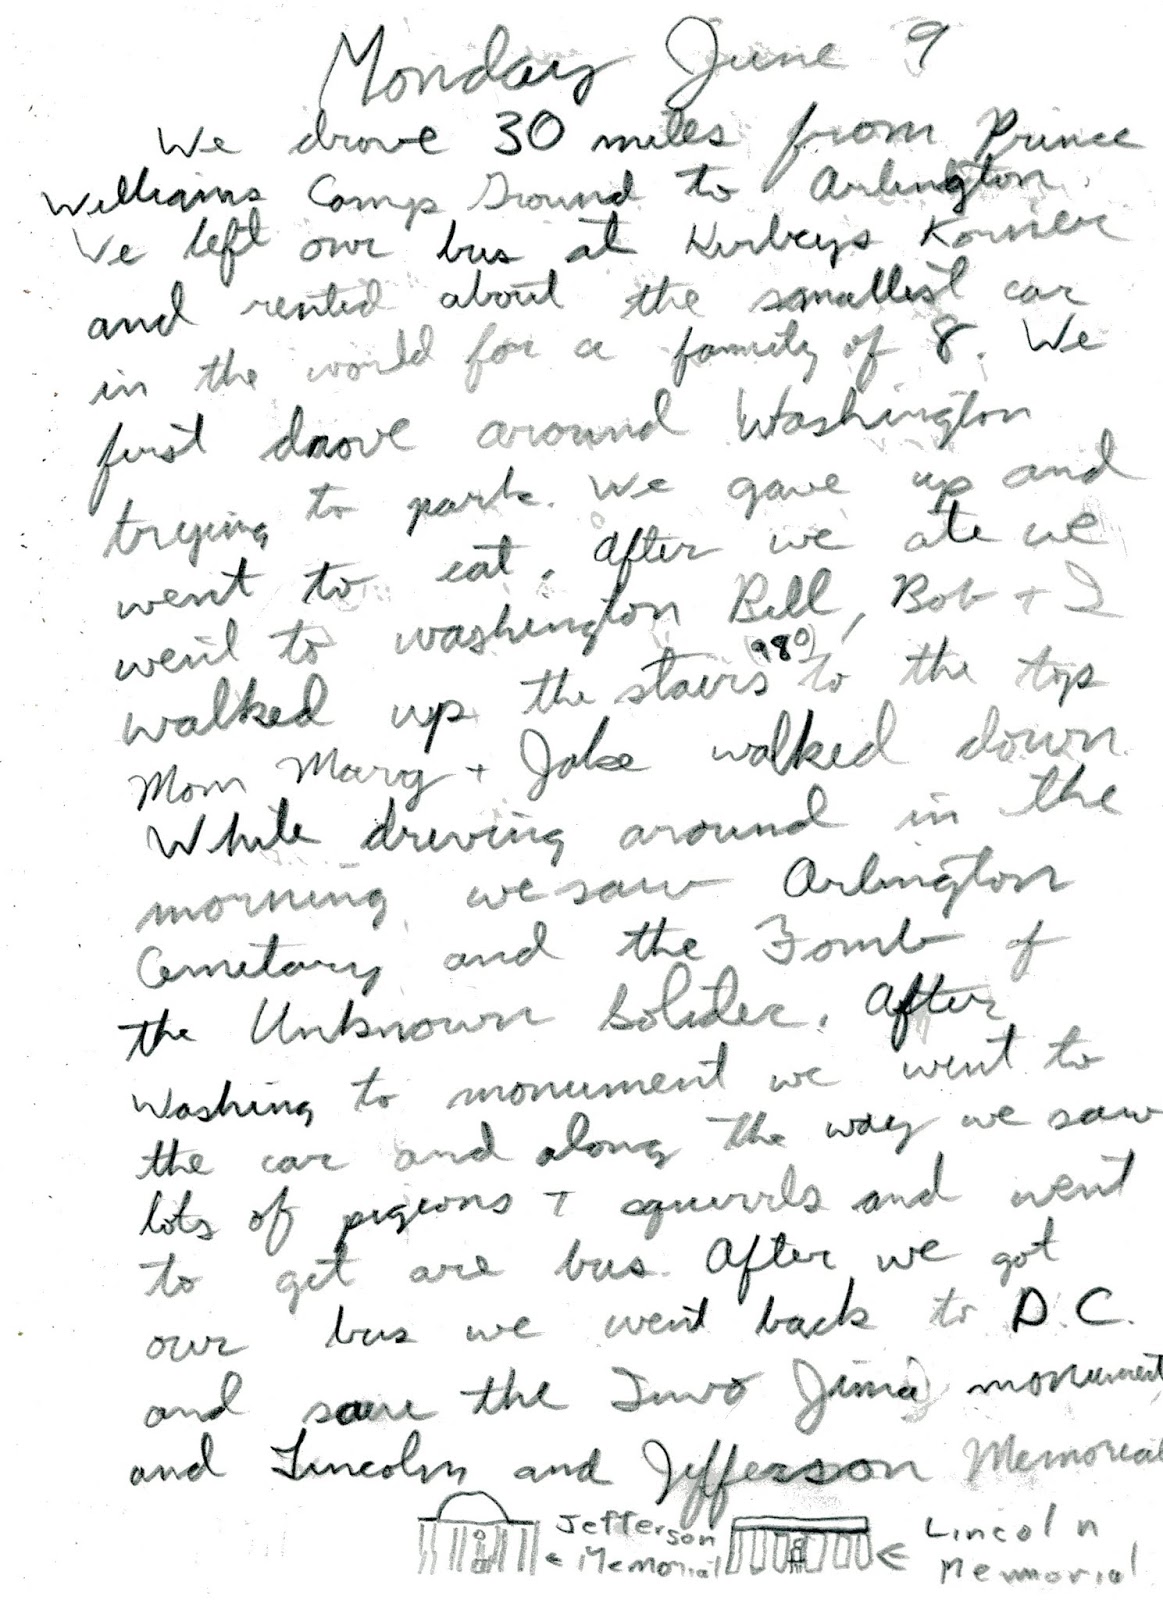 Monday June 9
We drove 30 miles from Prince
Williams Camp Ground to Arlington.
We left our bus at Kerbeys Korner
and rented about the smallest car
in the world for a family of 8. We
first drove around Washington
trying to park. We gave up and
went to eat. After we ate we
went to washington Bill, Bob + I
walked up the stairs (980) to the top
Mom Mary + Jake walked down.
While driving around in the
morning we saw Arlington
Cemetary and the Tomb of
the Unknown Solider. After
Washing to monument we went to
the car and along the way we saw
lots of pigeons + squirrls and went
to get are bus. After we got
our bus we went back to D.C.
and saw the Iwo Jima monument
and Lincoln and Jefferson Memorial
Jefferson
← Memorial
Lincoln
← Memorial